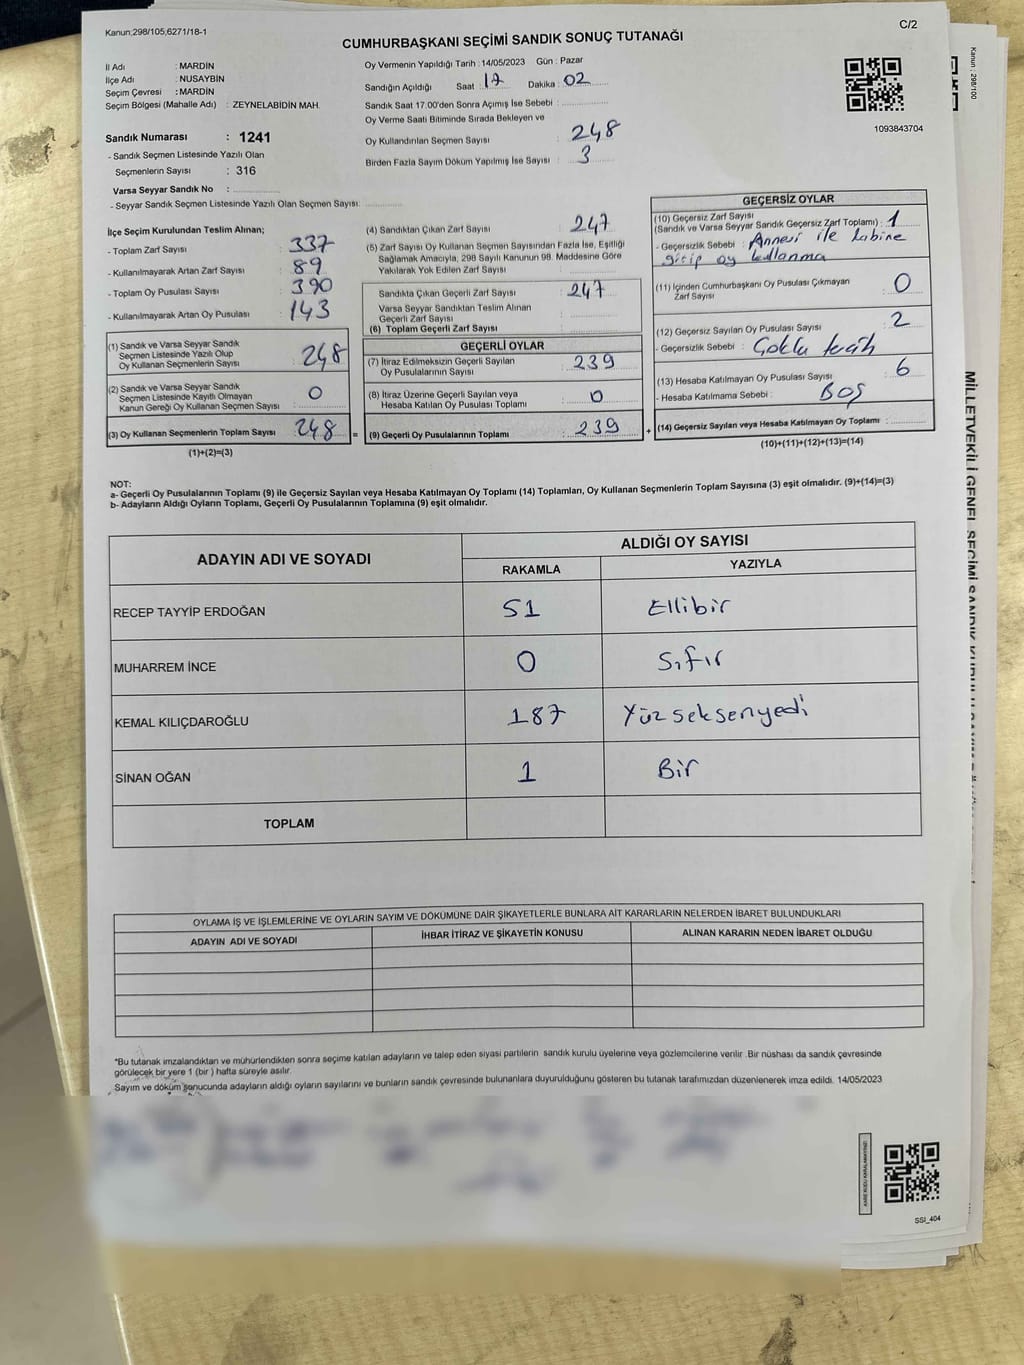 Kanun,298/105,6271/18-1
C/2
CUMHURBAŞKANI SEÇİMİ SANDIK SONUÇ TUTANAĞI
İl Adı : MARDİN
İlçe Adı : NUSAYBİN
Seçim Çevresi : MARDİN
Seçim Bölgesi (Mahalle Adı) : ZEYNELABİDİN MAH.
Sandık Numarası : 1241
- Sandık Seçmen Listesinde Yazılı Olan
Seçmenlerin Sayısı : 316
Varsa Seyyar Sandık No :
- Seyyar Sandık Seçmen Listesinde Yazılı Olan Seçmen Sayısı:
Oy Vermenin Yapıldığı Tarih : 14/05/2023 Gün : Pazar
Sandığın Açıldığı Saat : 17 Dakika : 02
Sandık Saat 17.00'den Sonra Açımış İse Sebebi :
Oy Verme Saati Bitiminde Sırada Bekleyen ve
Oy Kullandırılan Seçmen Sayısı : 248
Birden Fazla Sayım Döküm Yapılmış İse Sayısı : 3
1093843704
İlçe Seçim Kurulundan Teslim Alınan;
- Toplam Zarf Sayısı : 337
- Kullanılmayarak Artan Zarf Sayısı : 89
- Toplam Oy Pusulası Sayısı : 390
- Kullanılmayarak Artan Oy Pusulası : 143
(1) Sandık ve Varsa Seyyar Sandık
Seçmen Listesinde Yazılı Olup
Oy Kullanan Seçmenlerin Sayısı : 248
(2) Sandık ve Varsa Seyyar Sandık
Seçmen Listesinde Kayıtlı Olmayan
Kanun Gereği Oy Kullanan Seçmen Sayısı : 0
(3) Oy Kullanan Seçmenlerin Toplam Sayısı : 248 =
(1)+(2)=(3)
(4) Sandıktan Çıkan Zarf Sayısı : 247
(5) Zarf Sayısı Oy Kullanan Seçmen Sayısından Fazla İse, Eşitliği
Sağlamak Amacıyla, 298 Sayılı Kanunun 98. Maddesine Göre
Yakılarak Yok Edilen Zarf Sayısı :
Sandıkta Çıkan Geçerli Zarf Sayısı : 247
Varsa Seyyar Sandıktan Teslim Alınan
Geçerli Zarf Sayısı :
(6) Toplam Geçerli Zarf Sayısı :
GEÇERLİ OYLAR
(7) İtiraz Edilmeksizin Geçerli Sayılan
Oy Pusulalarının Sayısı : 239
(8) İtiraz Üzerine Geçerli Sayılan veya
Hesaba Katılan Oy Pusulası Toplamı : 0
(9) Geçerli Oy Pusulalarının Toplamı : 239 +
GEÇERSİZ OYLAR
(10) Geçersiz Zarf Sayısı
(Sandık ve Varsa Seyyar Sandık Geçersiz Zarf Toplamı) : 1
- Geçersizlik Sebebi : Annesi ile kabine
girip oy kullanma
(11) İçinden Cumhurbaşkanı Oy Pusulası Çıkmayan
Zarf Sayısı : 0
(12) Geçersiz Sayılan Oy Pusulası Sayısı : 2
- Geçersizlik Sebebi : Çoklu tercih
(13) Hesaba Katılmayan Oy Pusulası Sayısı : 6
- Hesaba Katılmama Sebebi : BOŞ
(14) Geçersiz Sayılan veya Hesaba Katılmayan Oy Toplamı :
(10)+(11)+(12)+(13)=(14)
NOT:
a- Geçerli Oy Pusulalarının Toplamı (9) ile Geçersiz Sayılan veya Hesaba Katılmayan Oy Toplamı (14) Toplamları, Oy Kullanan Seçmenlerin Toplam Sayısına (3) eşit olmalıdır. (9)+(14)=(3)
b- Adayların Aldığı Oyların Toplamı, Geçerli Oy Pusulalarının Toplamına (9) eşit olmalıdır.
ADAYIN ADI VE SOYADI
ALDIĞI OY SAYISI
RAKAMLA YAZIYLA
RECEP TAYYİP ERDOĞAN 51 Ellibir
MUHARREM İNCE 0 Sıfır
KEMAL KILIÇDAROĞLU 187 Yüzseksenyedi
SİNAN OĞAN 1 Bir
TOPLAM
OYLAMA İŞ VE İŞLEMLERİNE VE OYLARIN SAYIM VE DÖKÜMÜNE DAİR ŞİKAYETLERLE BUNLARA AİT KARARLARIN NELERDEN İBARET BULUNDUKLARI
ADAYIN ADI VE SOYADI İHBAR İTİRAZ VE ŞİKAYETİN KONUSU ALINAN KARARIN NEDEN İBARET OLDUĞU
*Bu tutanak imzalandıktan ve mühürlendikten sonra seçime katılan adayların ve talep eden siyasi partilerin sandık kurulu üyelerine veya gözlemcilerine verilir .Bir nüshası da sandık çevresinde
görülecek bir yere 1 (bir ) hafta süreyle asılır.
Sayım ve döküm sonucunda adayların aldığı oyların sayılarını ve bunların sandık çevresinde bulunanlara duyurulduğunu gösteren bu tutanak tarafımızdan düzenlenerek imza edildi. 14/05/2023
KARE KODU KARALAMAYINIZ!
SSI_404
Kanun : 298/100
MİLLETVEKİLİ GENEL SEÇİMİ SANDIK